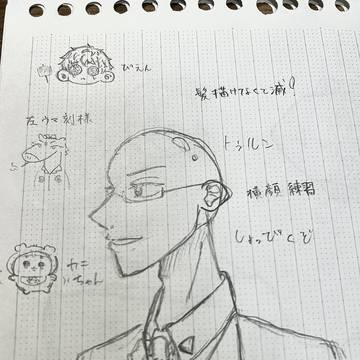 ぴえん
髪描けてなくて滅!
左ウマ刻様
トゥルン
横顔練習
しょっぴくぞ
カニ
ちゃん